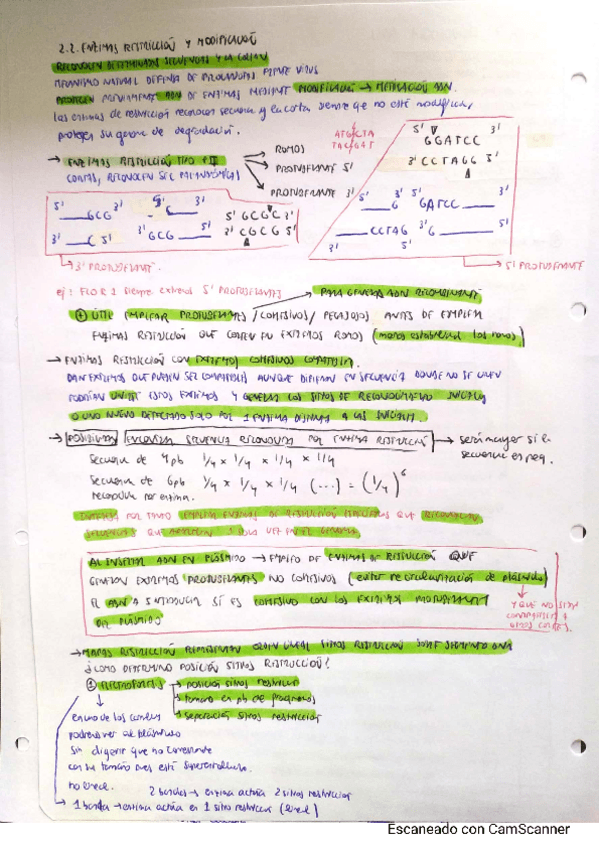 2.2. ENZIMAS RESTRICCIÓN Y MODIFICACIÓN
RECONOCEN DETERMINADAS SECUENCIAS Y LA CORTAN
MECANISMO NATURAL DEFENSA DE PROCARIOTAS FRENTE VIRUS
PROTEGEN PREVIAMENTE ADN DE ENZIMAS MEDIANTE MODIFICACIÓN → METILACIÓN ADN.
las enzimas de restricción reconocen secuencia y la cortan siempre que no esté modificada,
protege su genoma de degradación.
→ ENZIMAS RESTRICCIÓN TIPO II
→ ROMOS
→ PROTUBERANTE 5'
→ PROTUBERANTE 3'
CORTAS, RECONOCEN SEC PALINDRÓMICAS
5' GGATCC 3'
3' CCTAGG 5'
5' GCG 3' 5' C 3' 5' GCGC 3'
3' C 5' 3' GCG 5' 3' CGCG 5'
5' G 3' GATCC 3'
3' CCTAG 5' 3' G 5'
→ 3' PROTUBERANTE.
→ 5' PROTUBERANTE
ej: siempre extremos 5' PROTUBERANTES
→ PARA GENERAR ADN RECOMBINANTE
ÚTIL EMPLEAR PROTUBERANTES / COHESIVOS / PEGAJOSOS ANTES DE EMPLEAR
ENZIMAS RESTRICCIÓN QUE CORTEN EN EXTREMOS ROMOS (menos estabilidad los romos)
→ ENZIMAS RESTRICCIÓN CON EXTREMOS COHESIVOS COMPATIBLES.
DAN EXTREMOS QUE PUEDEN SER COMPATIBLES AUNQUE DIFIERAN EN SECUENCIA DONDE SE UNEN
PODRÍAN UNIRSE ESTOS EXTREMOS Y GENERAR LOS SITIOS DE RECONOCIMIENTO INICIALES
O UNO NUEVO DETECTADO SOLO POR 1 ENZIMA DISTINTA A LAS INICIALES.
→ ENCONTRAR SECUENCIA RECONOCIDA POR ENZIMA RESTRICCIÓN → será mayor si la
secuencia es peq.
Secuencia de 4pb 1/4 x 1/4 x 1/4 x 1/4
Secuencia de 6pb 1/4 x 1/4 x 1/4 (...) = (1/4)^6
reconocida por enzima.
POR TANTO EMPLEAR ENZIMAS DE RESTRICCIÓN ESPECÍFICAS QUE RECONOZCAN
SECUENCIAS QUE APAREZCAN 1 SOLA VEZ EN EL GENOMA.
AL INSERTAR ADN EN PLÁSMIDO → EMPLEO DE ENZIMAS DE RESTRICCIÓN QUE
GENERAN EXTREMOS PROTUBERANTES NO COHESIVOS (evitar recircularización de plásmido)
EL ADN A INTRODUCIR SÍ ES COHESIVO CON LOS EXTREMOS PROTUBERANTES
DEL PLÁSMIDO
Y QUE NO SEAN
COMPATIBLES A
→ MAPAS RESTRICCIÓN REPRESENTAN ORDEN LINEAL SITIOS RESTRICCIÓN SOBRE SEGMENTO ADN
¿COMO DETERMINO POSICIÓN SITIOS RESTRICCIÓN?
① ELECTROFORESIS → posición sitios restricción
→ tamaño en pb de fragmentos
→ separación sitios restricción
en uno de los
podremos ver al plásmido
sin digerir que no
con su tamaño pues está superenrollado.
no lineal.
2 bandas → enzima actúa 2 sitios restricción
→ 1 banda → enzima actúa en 1 sitio restricción (lineal)
Escaneado con CamScanner